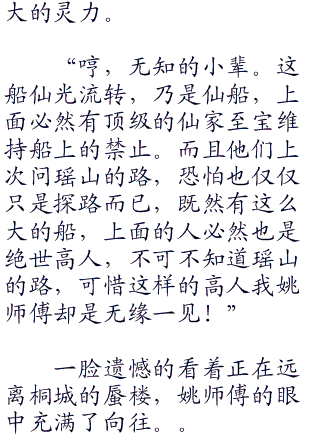 大的灵力。
“哼，无知的小辈。这
船仙光流转，乃是仙船，上
面必然有顶级的仙家至宝维
持船上的禁止。而且他们上
次问瑶山的路，恐怕也仅仅
只是探路而已，既然有这么
大的船，上面的人必然也是
绝世高人，不可不知道瑶山
的路，可惜这样的高人我姚
师傅却是无缘一见！”
一脸遗憾的看着正在远
离桐城的蜃楼，姚师傅的眼
中充满了向往。。